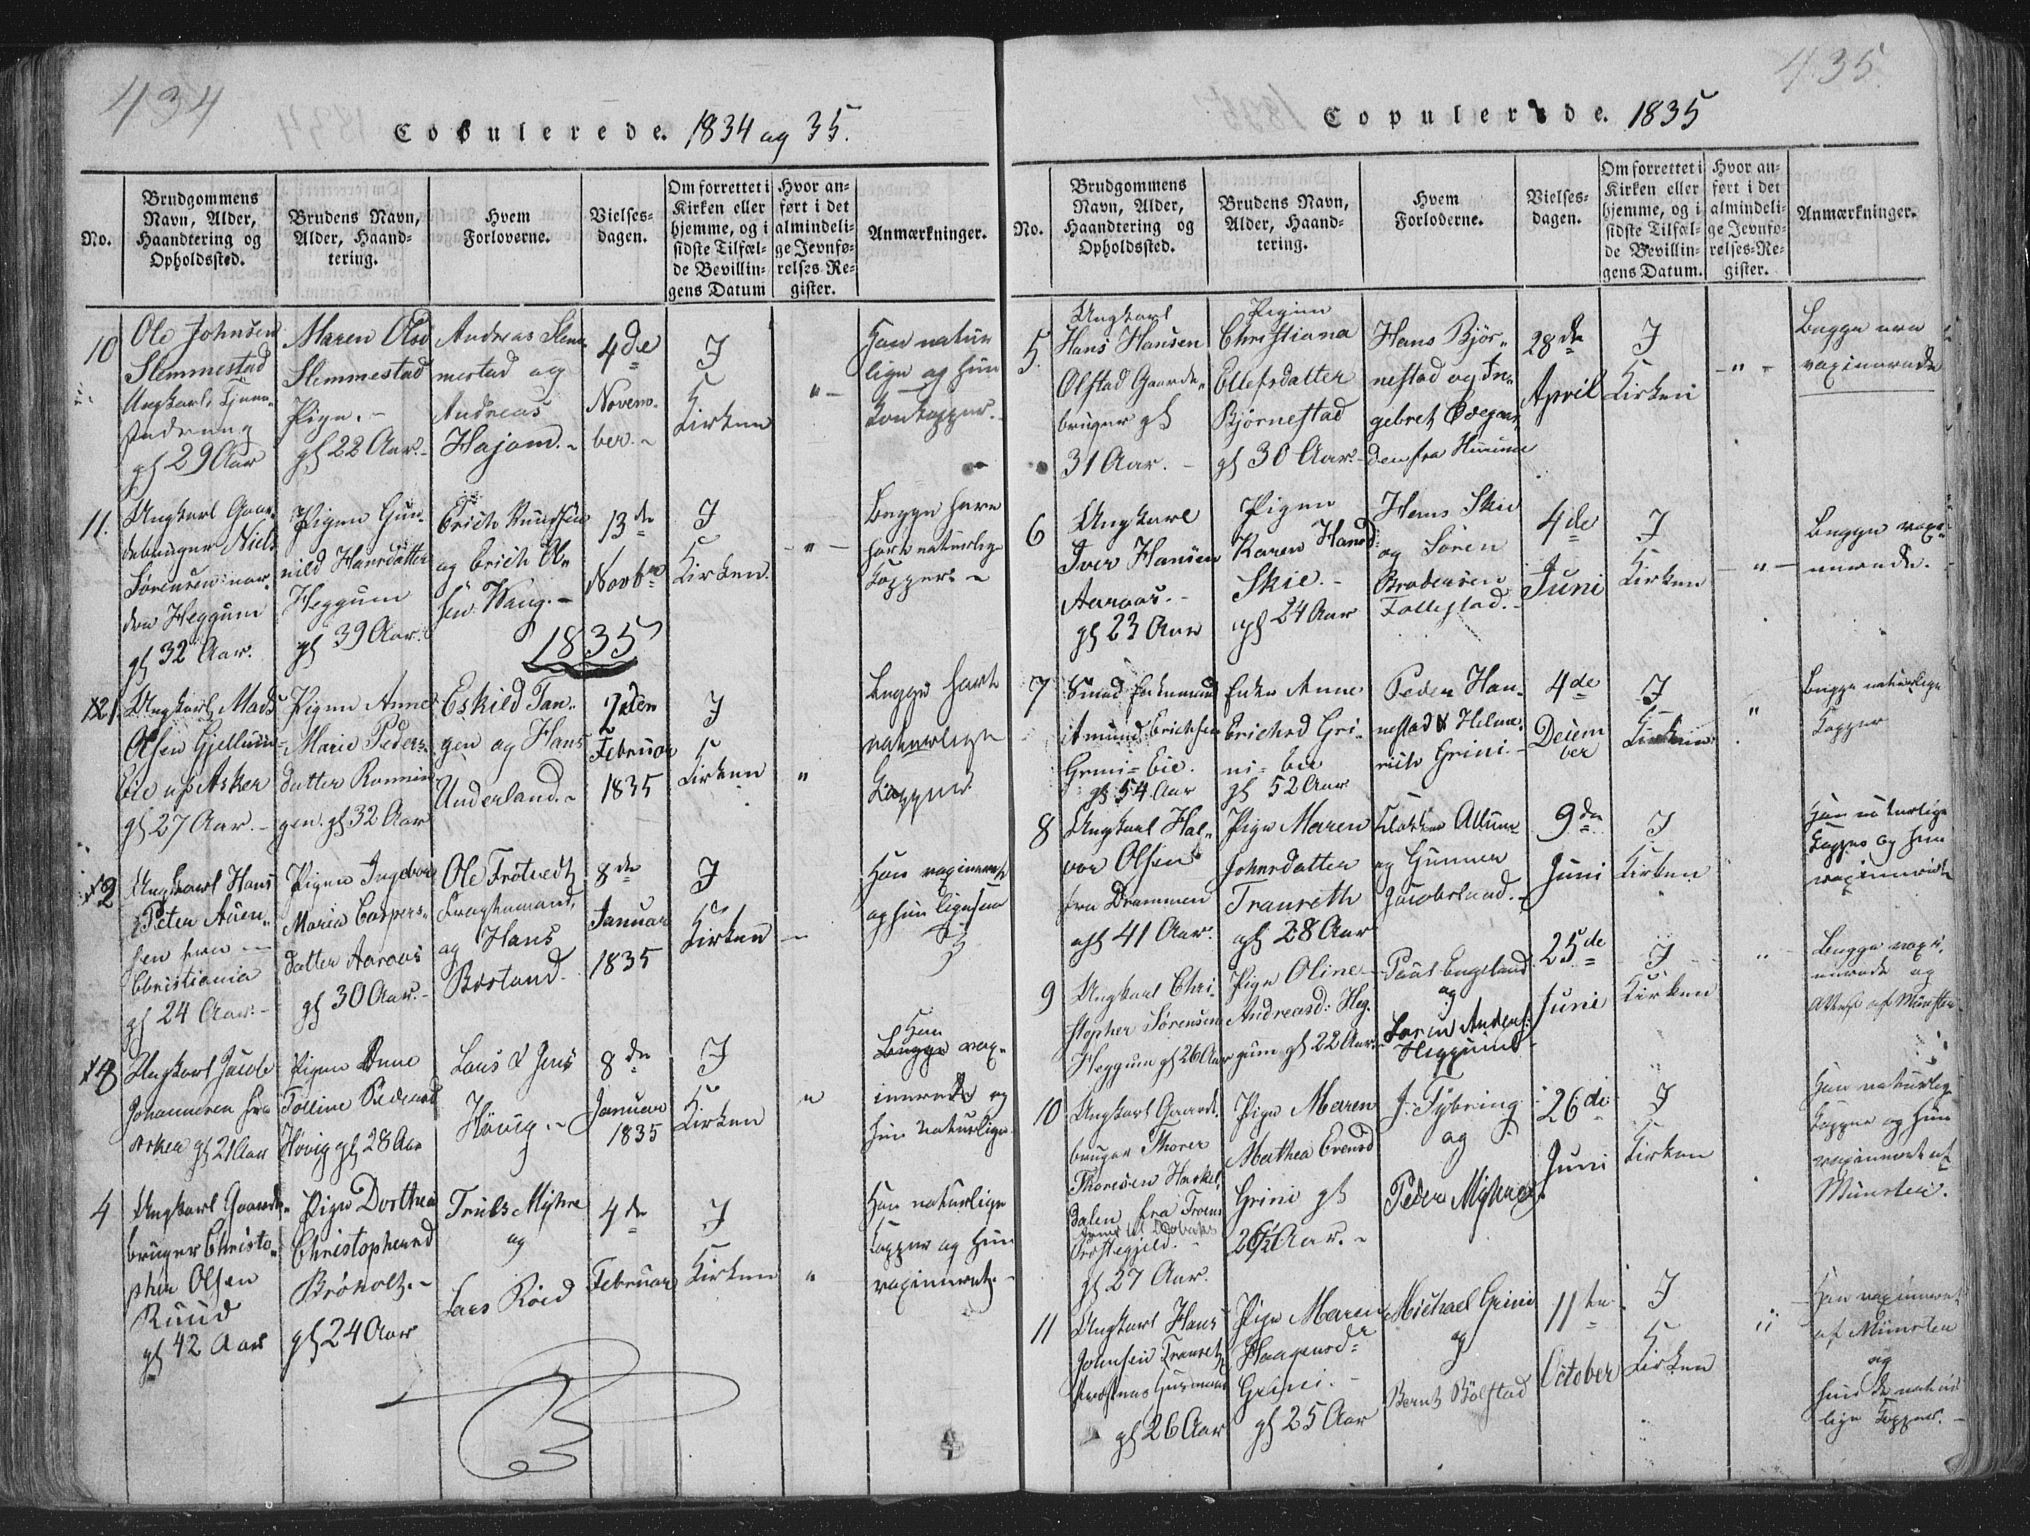 434
Copulerede. 1834 og 35.
No.
Brudgommens
Navn, Alder,
Haandtering og
Opholdssted.
Brudens Navn,
Alder, Haand-
tering.
Hvem
Forloverne.
Vielses-
dagen.
Om forrettet i
Kirken eller
hjemme, og i
sidste Tilfæl-
de Bevillin-
gens Datum
Hvor an-
ført i det
almindeli-
ge Jevnfø-
relses-Re-
gister.
Anmærkninger.
10
Ole Johnsen
Slemmestad
Ungkarl,
gl 29 Aar
Maren Olsd
Slemmestad
Pige.-
gl 22 Aar.-
Andreas Slem-
mestad og
Andreas
Hajom.-
4de
Novem-
ber.-
I
Kirken
"-
Han natur
lige og hun
Koekopper.-
11.
Ungkarl Gaar-
debruger Niels
Sørensen nor-
dre Heggum
gl 32 Aar.
Pigen Gun-
nild Hansdatter
Heggum
gl 39 Aar.
Erich Knudsen
og Erich Ol-
sen Wang.-
13de
Novbr
I
Kirken.
- " -
Begge have
havt naturlige
Kopper.-
1835
1
Ungkarl Mads
Olsen Gjellum-
Eie af Asker
gl 27 Aar.-
Pigen Anne
Marie Peders-
datter Rønnin
gen. gl 32 Aar
Eskild Tan-
gen og Hans
Underland.-
2den
Februar
1835
I
Kirken
"
Begge havt
naturlige
Kopper
2
Ungkarl Hans
Peter Auen-
sen fra
Christiania
gl 24 Aar.-
Pigen Ingebor
Maria Caspers-
datter Aaraas
gl 30 Aar.-
Ole Frøtvedt
og Hans
Bostand.
8de
Januar
1835
I
Kirken
-
Han vaxineret
og hun ligesaa
3
Ungkarl Jacob
Johannesen fra
Asker gl 21 Aar
Pigen Anne
Tolline Pedersd
Høvig gl 28 Aar
Lars & Jens
Høvig.-
8de
Januar
1835
I
Kirken
"
Han
Begge vax-
ineret og
hun naturlige
4
Ungkarl Gaard-
bruger Christo-
pher Olsen
Ruud
gl 42 Aar
Pige Dorthea
Christophersd
Brøholt.-
gl 24 Aar
Truls Myhre
og
Lars Röed
4de
Februar
I
Kirken
"
Han naturlige
Kopper og hun
vaxineret.-
435
Copulerede. 1835
No.
Brudgommens
Navn, Alder,
Haandtering og
Opholdssted.
Brudens Navn,
Alder, Haand-
tering.
Hvem
Forloverne.
Vielses-
dagen.
Om forrettet i
Kirken eller
hjemme, og i
sidste Tilfæl-
de Bevillin-
gens Datum.
Hvor an-
ført i det
almindeli-
ge Jevnfø-
relses-Re-
gister.
Anmærkninger.
5.
Ungkarl
Hans Hansen
Olstad Gaard-
bruger gl
31 Aar.-
Pigen
Christiana
Ellefsdatter
Bjørnestad
gl 30 Aar.-
Hans Bjør-
nestad og In-
gebret Ødegaar
den fra Hurum
28de
April
I
Kirken
- " -
Begge ere
vaxinerede
6
Ungkarl
Iver Hansen
Aaraas.-
gl 23 Aar
Pigen
Karen Hansd:
Skie.-
gl 24 Aar
Hans Skie
og Søren
Brodersen
Follestad.-
4de
Juni
I
Kirken
- " -
Begge vaxi-
nerede.
7
Smed Enkemand
Amund Erichsen
Grini-Eie.
gl 54 Aar
Enke Anne
Erichsd Gri-
ni-Eie
gl 52 Aar
Peder Han-
nestad & Helme
Grini.-
4de
Decem
ber
I
Kirken
"
Begge naturlige
Kopper
8
Ungkarl Hal-
vor Olsen
fra Drammen
gl 41 Aar.
Pige Maren
Johnsdatter
Tranreth
gl 28 Aar
Klokker Allum
og Gunner
Jacobsland.-
9de
Juni
I
Kirken
Han naturlige
Kopper og hun
vaxineret
9
Ungkarl Chri-
stopher Sørensen
Heggum gl 26 Aar
Pige Oline
Andreasd: Heg
gum gl 22 Aar.-
Paul Engeland
og
Søren Anders:
Heggum.-
25de
Juni
I
Kirken
"
Begge vaxi-
nerede og
Attest af Münster
10
Ungkarl Gaard-
bruger Thorer
Thoresen Haskel
dalen fra
Præstegjeld.-
gl 27 Aar.
Pige Maren
Mathea Evensd
Grini gl
26½ Aar.-
J. Fybring
og
Peder Myhre
26de
Juni
I
Kirken
Han naturlige
Kopper og hun
vaxineret af
Münster.
11
Ungkarl Hans
Johnsen Tranreth
gl 26 Aar
Pige Maren
Haagensdr
Grini.-
gl 25 Aar
Michael Grini
og
Bernt Bölstad
11te
October
I
Kirken
"
Han vaxineret
af Münster
og
hun natur
lige Kopper.-